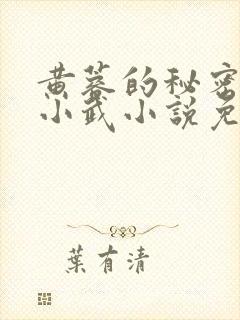 黄蓉的秘密
小武小說免
葉有清